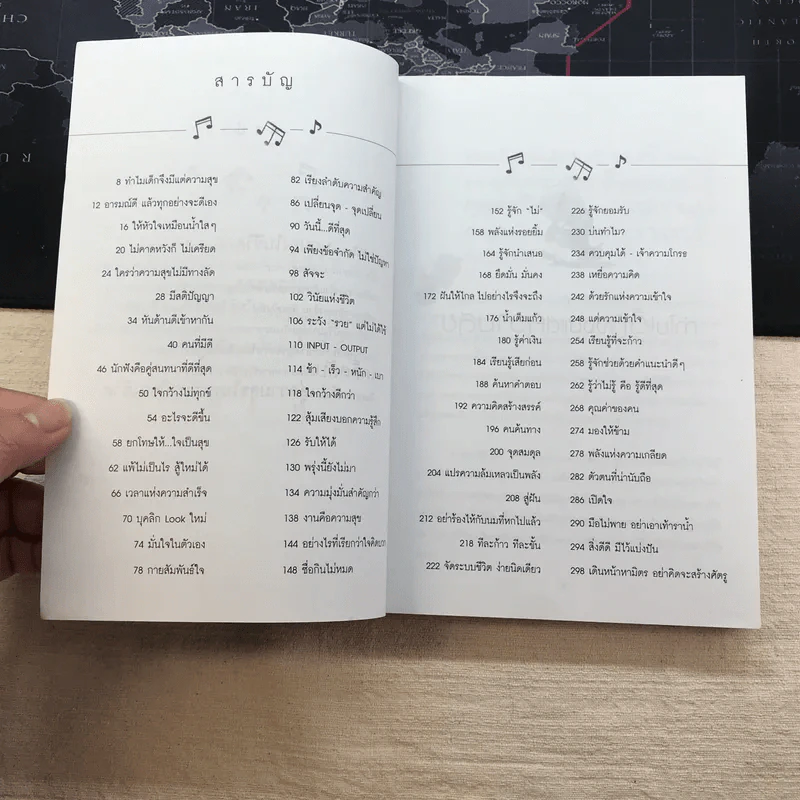 สารบัญ
8 ทำไมเด็กจึงมีแต่ความสุข
12 อารมณ์ดี แล้วทุกอย่างจะดีเอง
16 ให้หัวใจเหมือนน้ำใสๆ
20 ไม่คาดหวังก็ ไม่เครียด
24 ใครว่าความสุขไม่มีทางลัด
28 มีสติปัญญา
34 หันด้านดีเข้าหากัน
40 คนที่มีดี
46 นักฟังคือคู่สนทนาที่ดีที่สุด
50 ใจกว้างไม่ทุกข์
54 อะไรจะดีขึ้น
58 ยกโทษให้...ใจเป็นสุข
62 แพ้ไม่เป็นไร สู้ใหม่ได้
66 เวลาแห่งความสำเร็จ
70 บุคลิก Look ใหม่
74 มั่นใจในตัวเอง
78 กายสัมพันธ์ใจ
82 เรียงลำดับความสำคัญ
86 เปลี่ยนจุด - จุดเปลี่ยน
90 วันนี้...ดีที่สุด
94 เพียงข้อจำกัด ไม่ใช่ปัญหา
98 สัจจะ
102 วินัยแห่งชีวิต
106 ระวัง "รวย" แต่ไม่ได้ใช้
110 INPUT - OUTPUT
114 ช้า - เร็ว - หนัก - เบา
118 ใจกว้างดีกว่า
122 สุ้มเสียงบอกความรู้สึก
126 รับให้ได้
130 พรุ่งนี้ยังไม่มา
134 ความมุ่งมั่นสำคัญกว่า
138 งานคือความสุข
144 อย่างไรที่เรียกว่าใจคิดบวก
148 ซื่อกินไม่หมด
152 รู้จัก "ไม่"
158 พลังแห่งรอยยิ้ม
164 รู้จักนำเสนอ
168 ยึดมั่น มั่นคง
172 ฝันให้ไกล ไปอย่างไรจึงจะถึง
176 น้ำเต็มแก้ว
180 รู้ค่าเงิน
184 เรียนรู้เสียก่อน
188 ค้นหาคำตอบ
192 ความคิดสร้างสรรค์
196 คนค้นทาง
200 จุดสมดุล
204 แปรความล้มเหลวเป็นพลัง
208 สู่ฝัน
212 อย่าร้องไห้กับนมที่หกไปแล้ว
218 ทีละก้าว ทีละขั้น
222 จัดระบบชีวิต ง่ายนิดเดียว
226 รู้จักยอมรับ
230 บ่นทำไม?
234 ควบคุมได้ - เจ้าความโกรธ
238 เหยื่อความคิด
242 ด้วยรักแห่งความเข้าใจ
248 แต่ความเข้าใจ
254 เรียนรู้ที่จะก้าว
258 รู้จักช่วยด้วยคำแนะนำดีๆ
262 รู้ว่าไม่รู้ คือ รู้ดีที่สุด
268 คุณค่าของคน
274 มองให้ข้าม
278 พลังแห่งความเกลียด
282 ตัวตนที่น่านับถือ
286 เปิดใจ
290 มือไม่พาย อย่าเอาเท้าราน้ำ
294 สิ่งดีดี มีไว้แบ่งปัน
298 เดินหน้าหามิตร อย่าคิดจะสร้างศัตรู